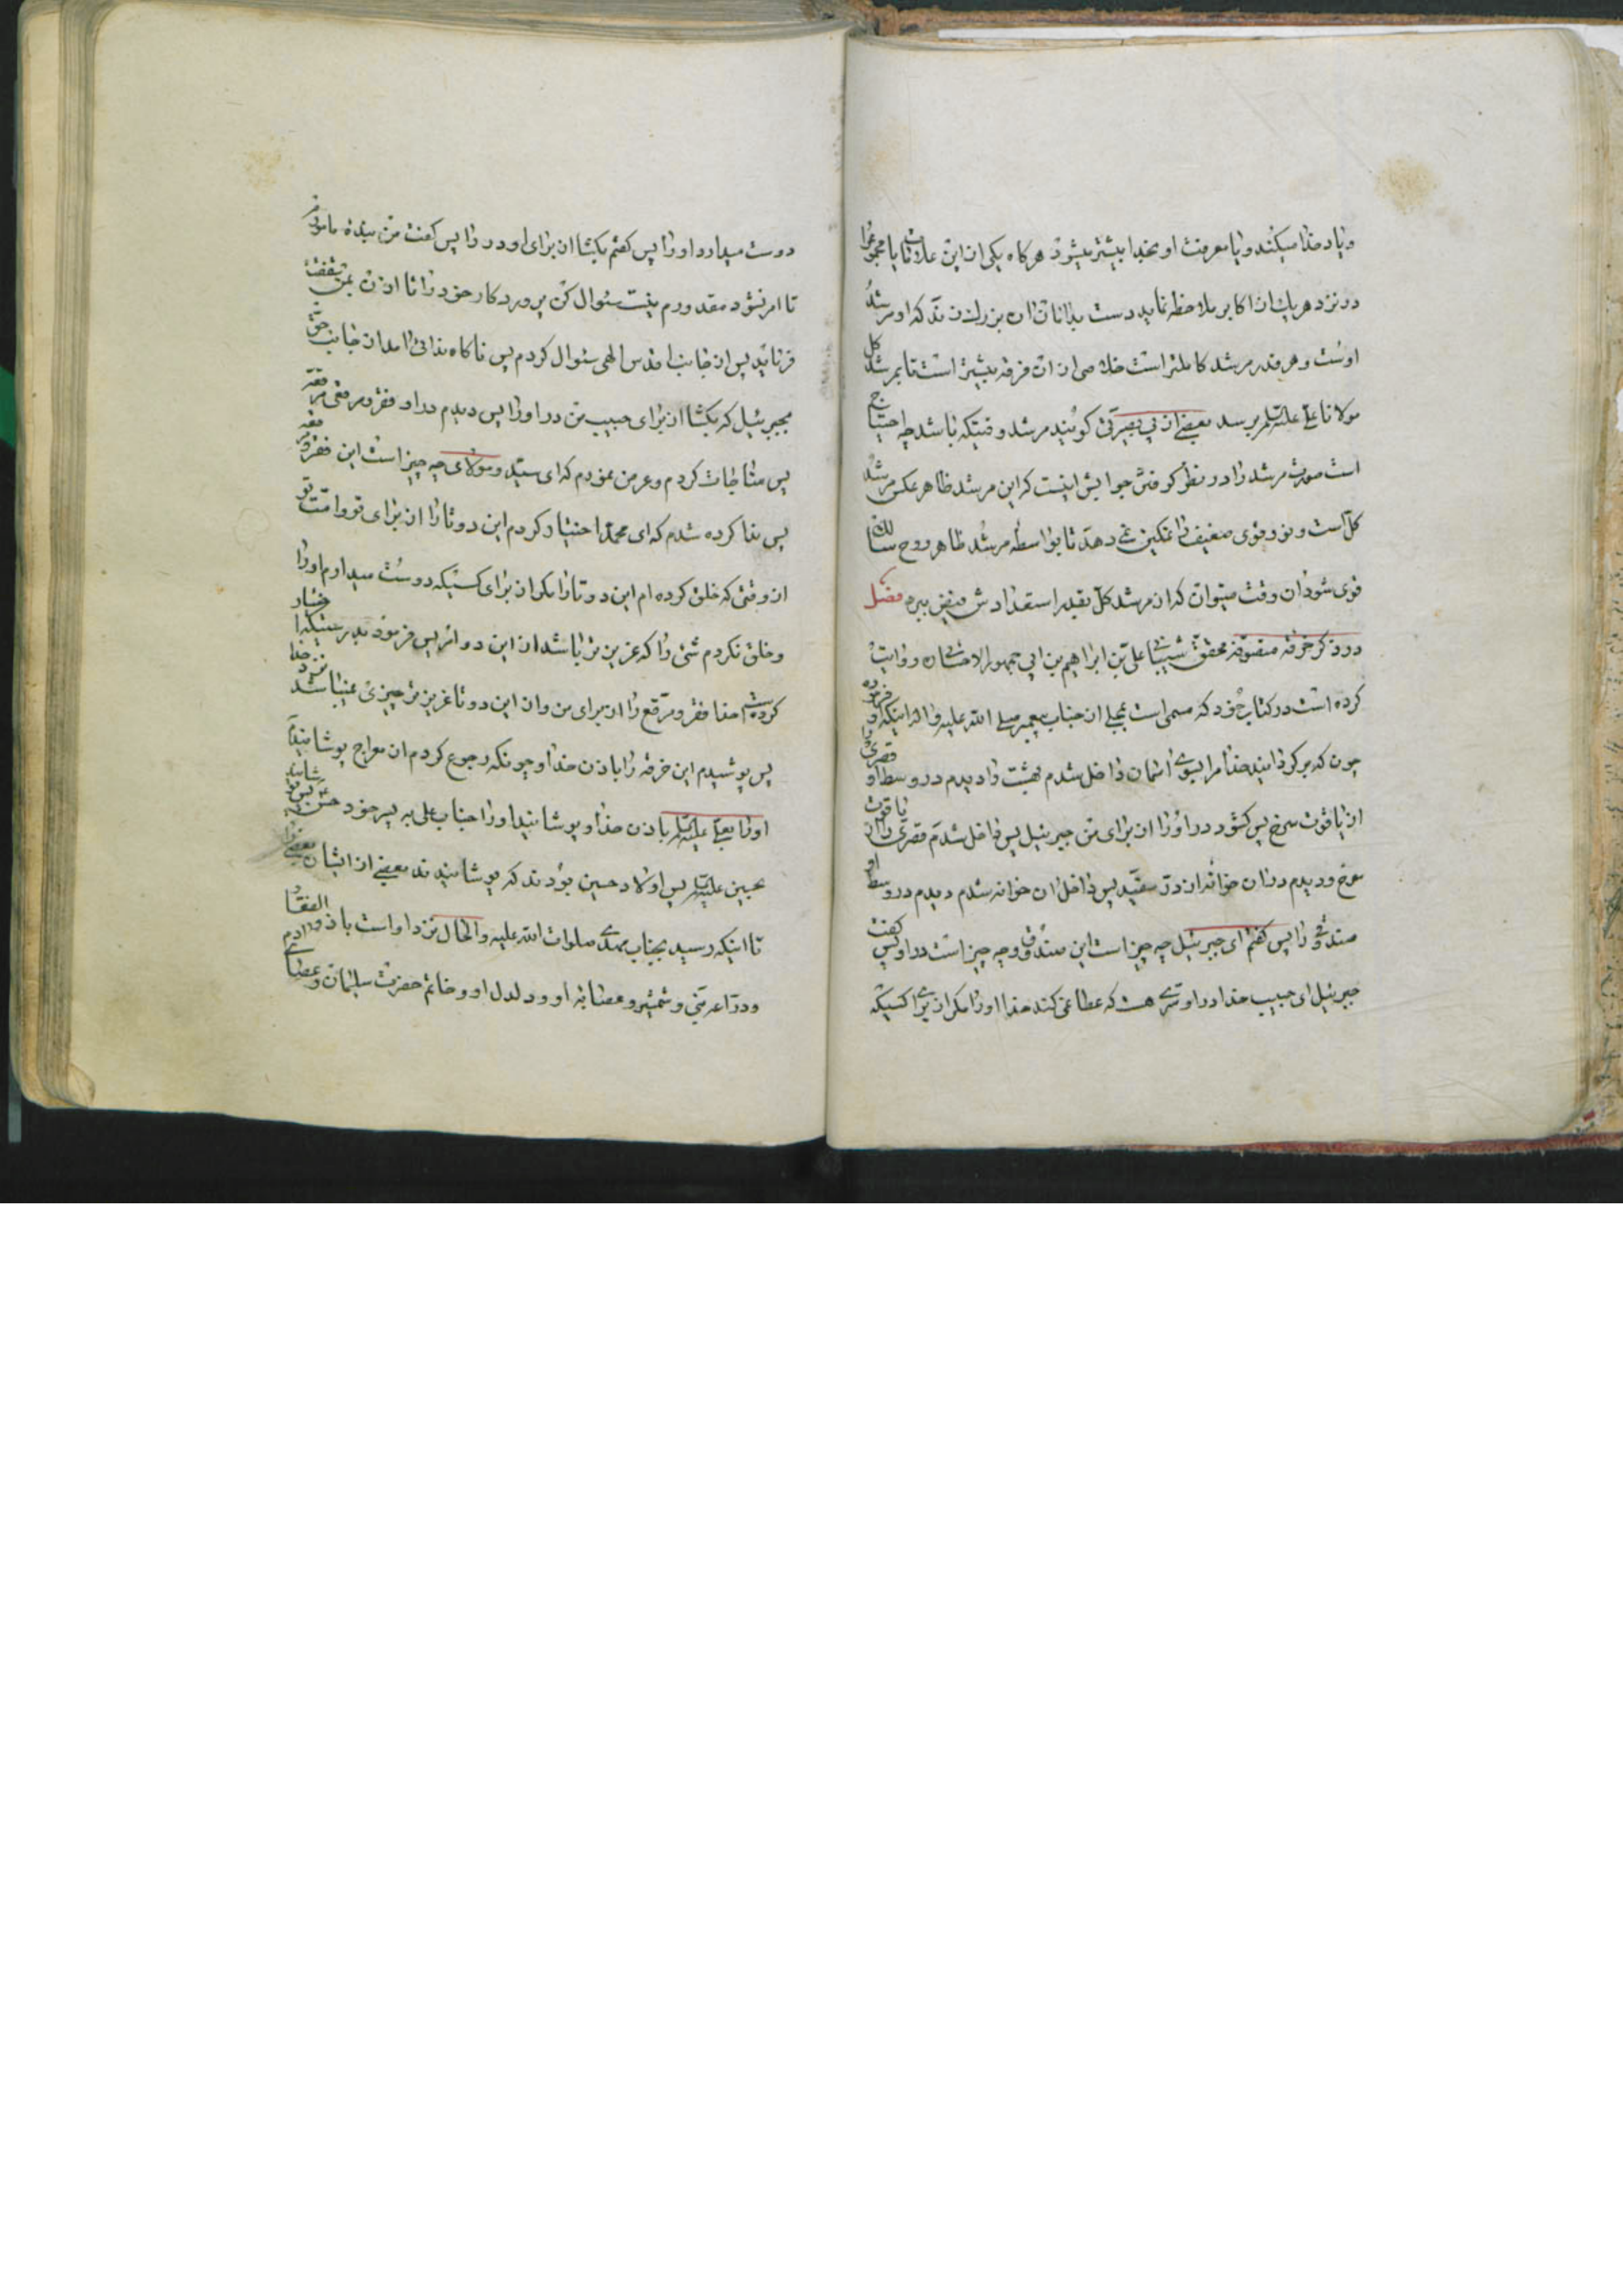 و یاد خدا میکند و یا معرفت او بخدا بیشتر میشود هرکاه یکی از این علامات یا مجموع را
در نزد هریک از اکابر ملاحظه نماید دست بدامان ان بزرك زند که او مرشد
اوست و هر قدر مرشد کاملتر است خلاصی از ان فرقه بیشتر است تا بمرشد کل
مولانا علی علیه السلم برسد بعضی از بی بصیرتی کویند مرشد وقتیکه باشد چه احتیاج
است صورت مرشد را در نظر کرفتن جوابش اینست که این مرشد ظاهر عکس مرشد
کل است و نور قوی ضعیف را تمکین نمی دهد تا بواسطه مرشد ظاهر روح سالك
قوی شود ان وقت میتوان که از مرشد کل بقدر استعدادش فیض ببرد فصل
در ذکر خرقه متصوفه محقق شیبانی علی بن ابراهیم بن ابی جمهور الاحسائی روایت
کرده است در کتاب خود که مسمی است بمجلی از جناب پیغمبر صلی الله علیه و اله اینکه او فرموده
چون که برکردانید خدا مرا بسوی اسمان داخل شدم بهشت را دیدم در وسط او قصری را
از یاقوت سرخ پس کشود در او را از برای من جبرئیل پس داخل شدم قصری را از یاقوت
سرخ و دیدم در ان خوانه از در سفید پس داخل ان خوانه شدم دیدم در وسط او
صندقی را پس کفتم ای جبرئیل چه چیز است این صندق و چه چیز است در او پس کفت
جبرئیل ای حبیب خدا در او سری هست که عطا نمی کند خدا او را مکر از برای کسیکه
دوست میدارد او را پس کفتم بکشا از برای او در را پس کفت من بنده مامورم
تا امر نشود مقدورم نیست سئوال کن پروردکار خود را تا اذن بمن شفقت
فرماید پس از جانب اقدس الهی سئوال کردم پس ناکاه ندائی امد از جانب حق
بجبرئیل که بکشا از برای حبیب من در او را پس دیدم در او فقر و مرقعه
پس مناجات کردم و عرض نمودم که ای سید و مولای چه چیز است این فقر و مرقعه
پس ندا کرده شدم که ای محمد اختیار کردم این دو تا را از برای تو و امت تو
از وقتی که خلق کرده ام این دو تا را مکر از برای کسیکه دوست میدارم او را
و خلق نکردم شئ را که عزیز تر باشد از این دو از پس فرمود بدرستیکه اختیار
کرده است خدا فقر و مرقع را از برای من و از این دو تا عزیز تر چیزی نمیباشد نزد خدا
پس پوشیدم این خرقه را باذن خدا و چونکه رجوع کردم از معراج پوشانیدم
او را بعلی علیه السلم باذن خدا و پوشانید او را جناب علی به پسر خود حسن پس پوشانید
بحسین علیه السلم پس اولاد حسین بودند که پوشانیدند بعضی از ایشان بعضی را
تا اینکه رسید بجناب مهدی صلوات الله علیه و الحال نزد او است با ذو الفقار
و دراعه نبی و شمشیر و عصابه او و دلدل او و خاتم حضرت سلیمان و عصای ادم